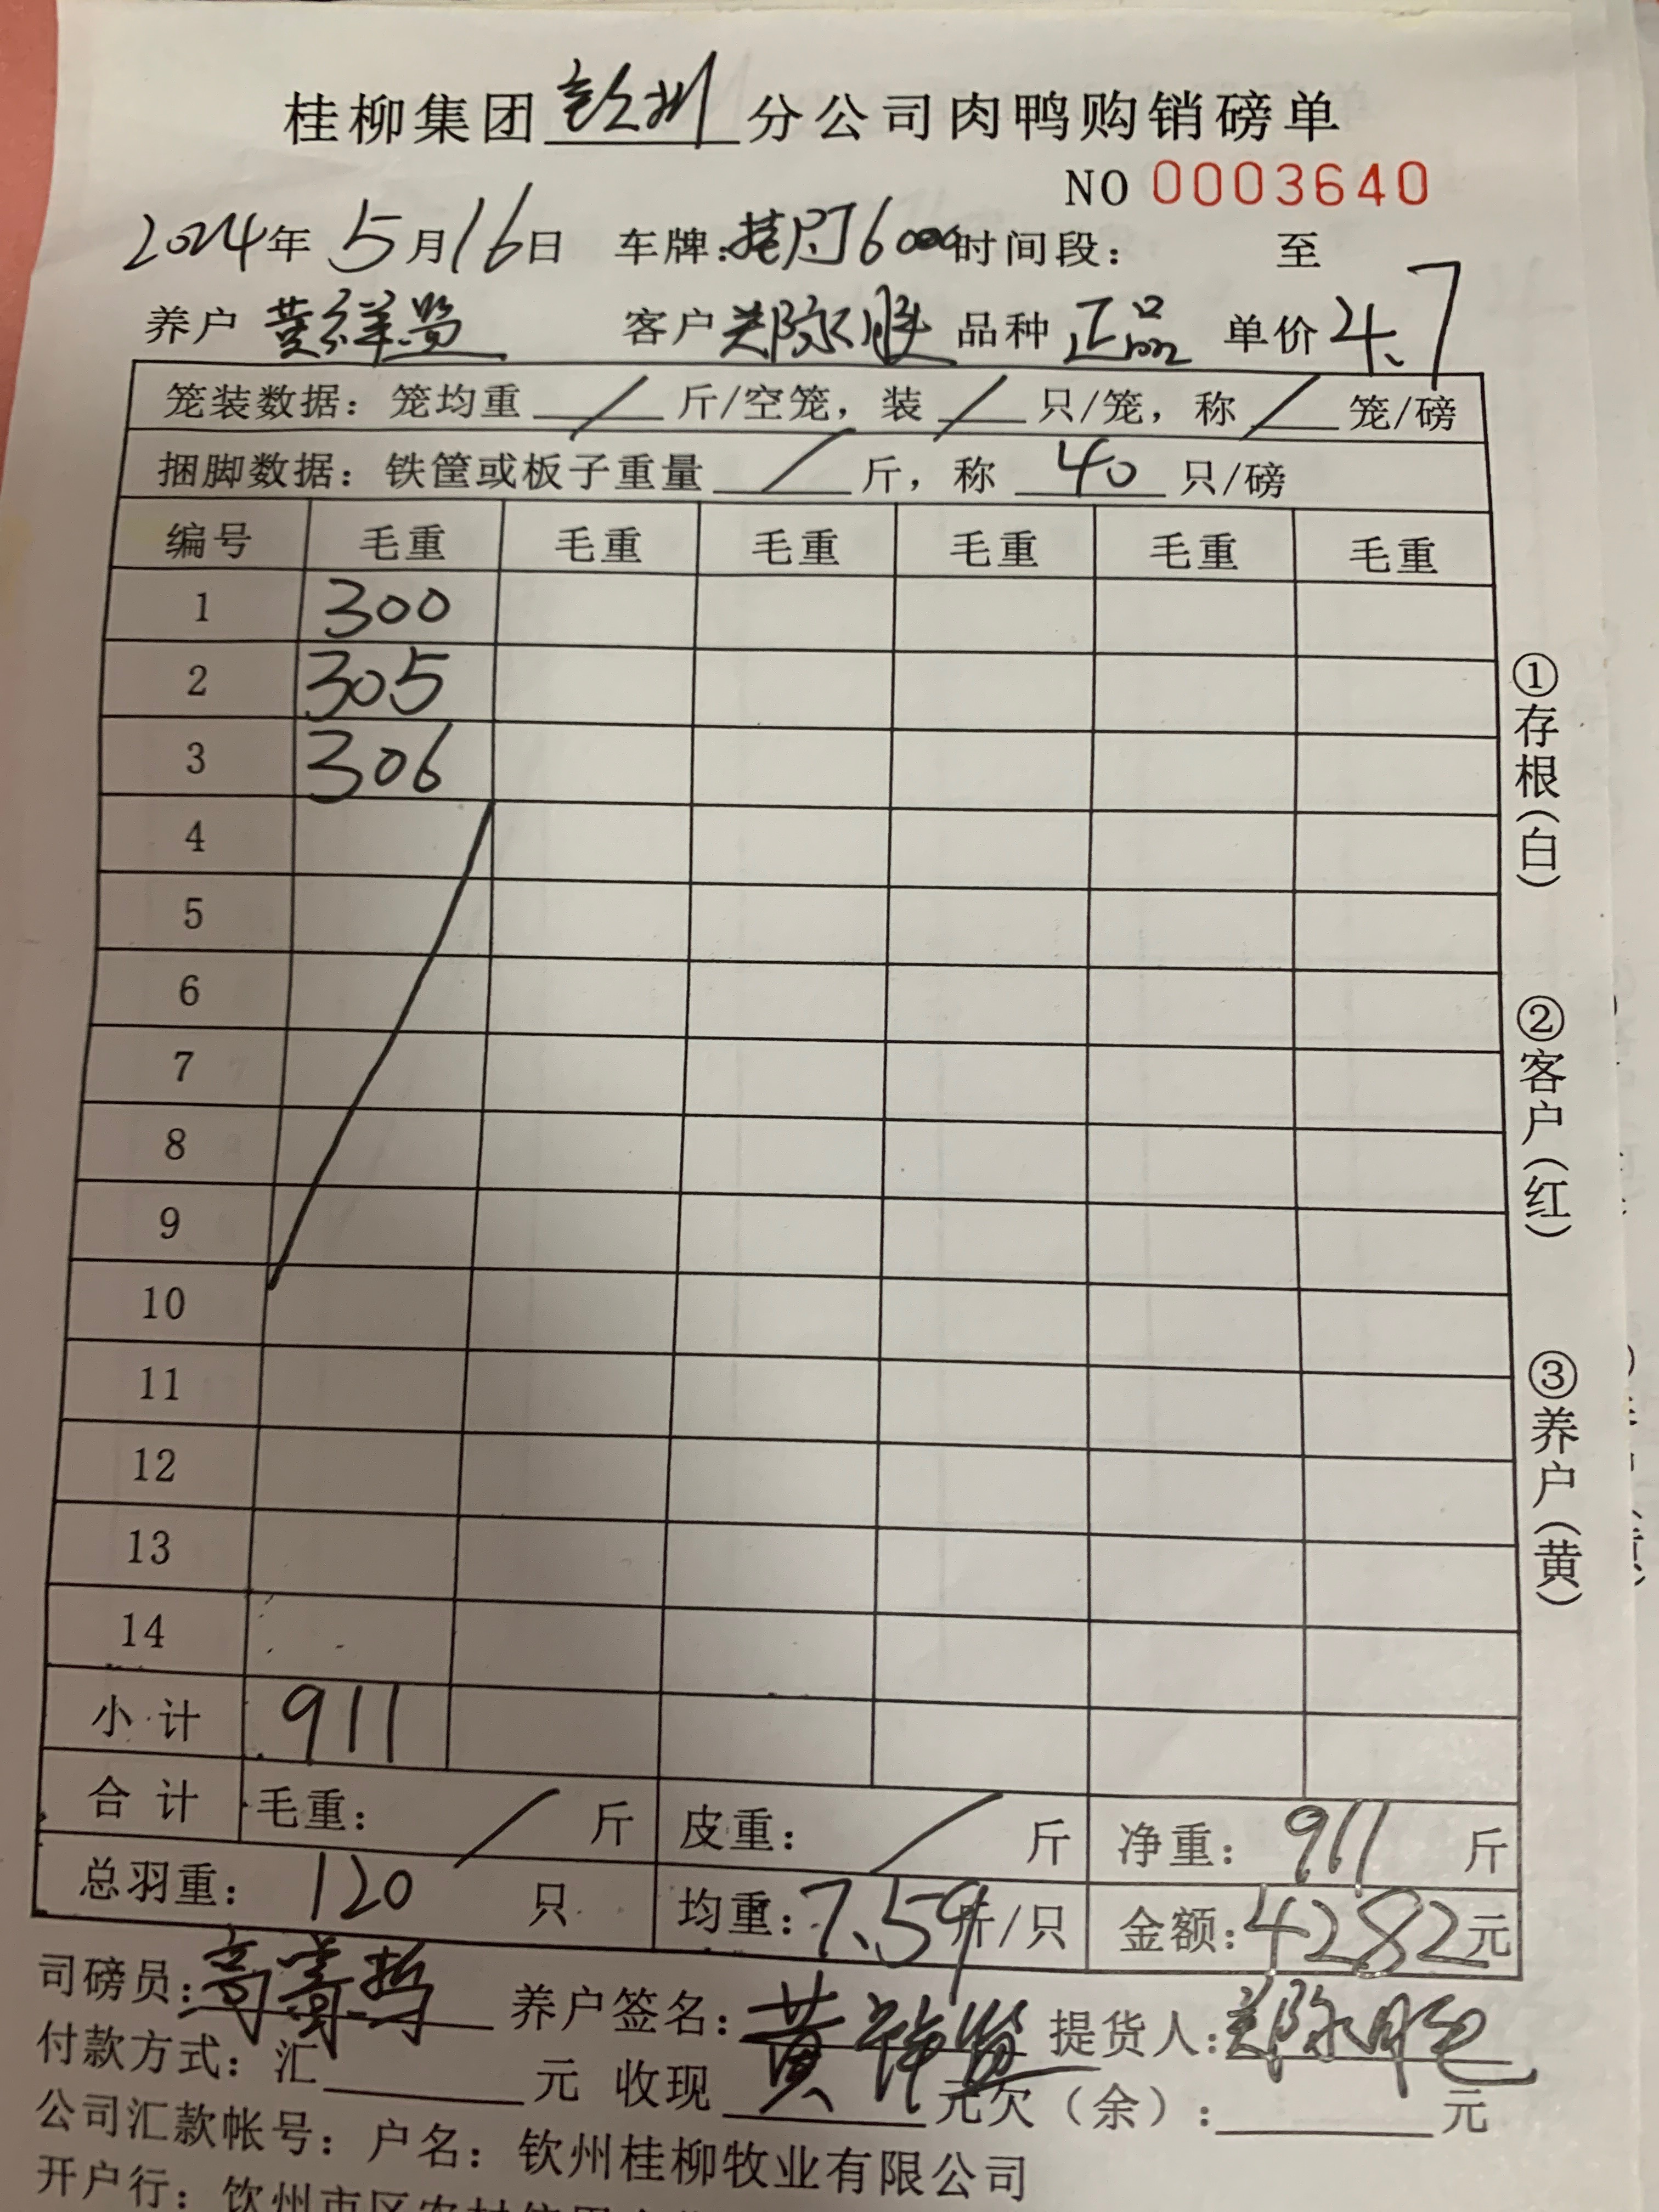 桂柳集团钦州分公司肉鸭购销磅单
NO 0003640
2024年 5月16日 车牌: 6000 时间段: 至
养户 黄祥贤 客户 郑际胜 品种 正品 单价 4.7
笼装数据: 笼均重 / 斤/空笼, 装 / 只/笼, 称 / 笼/磅
捆脚数据: 铁筐或板子重量 / 斤, 称 40 只/磅
编号 毛重 毛重 毛重 毛重 毛重 毛重
1 300
2 305
3 306
4
5
6
7
8
9
10
11
12
13
14
小计 911
合计 毛重: / 斤 皮重: / 斤 净重: 911 斤
总羽重: 120 只 均重: 7.59 斤/只 金额: 4282元
司磅员: 养户签名: 黄祥贤 提货人: 郑际胜
付款方式: 汇 元 收现 元 欠(余): 元
公司汇款帐号: 户名: 钦州桂柳牧业有限公司
开户行: 钦州市区农村信用
①存根(白)
②客户(红)
③养户(黄)